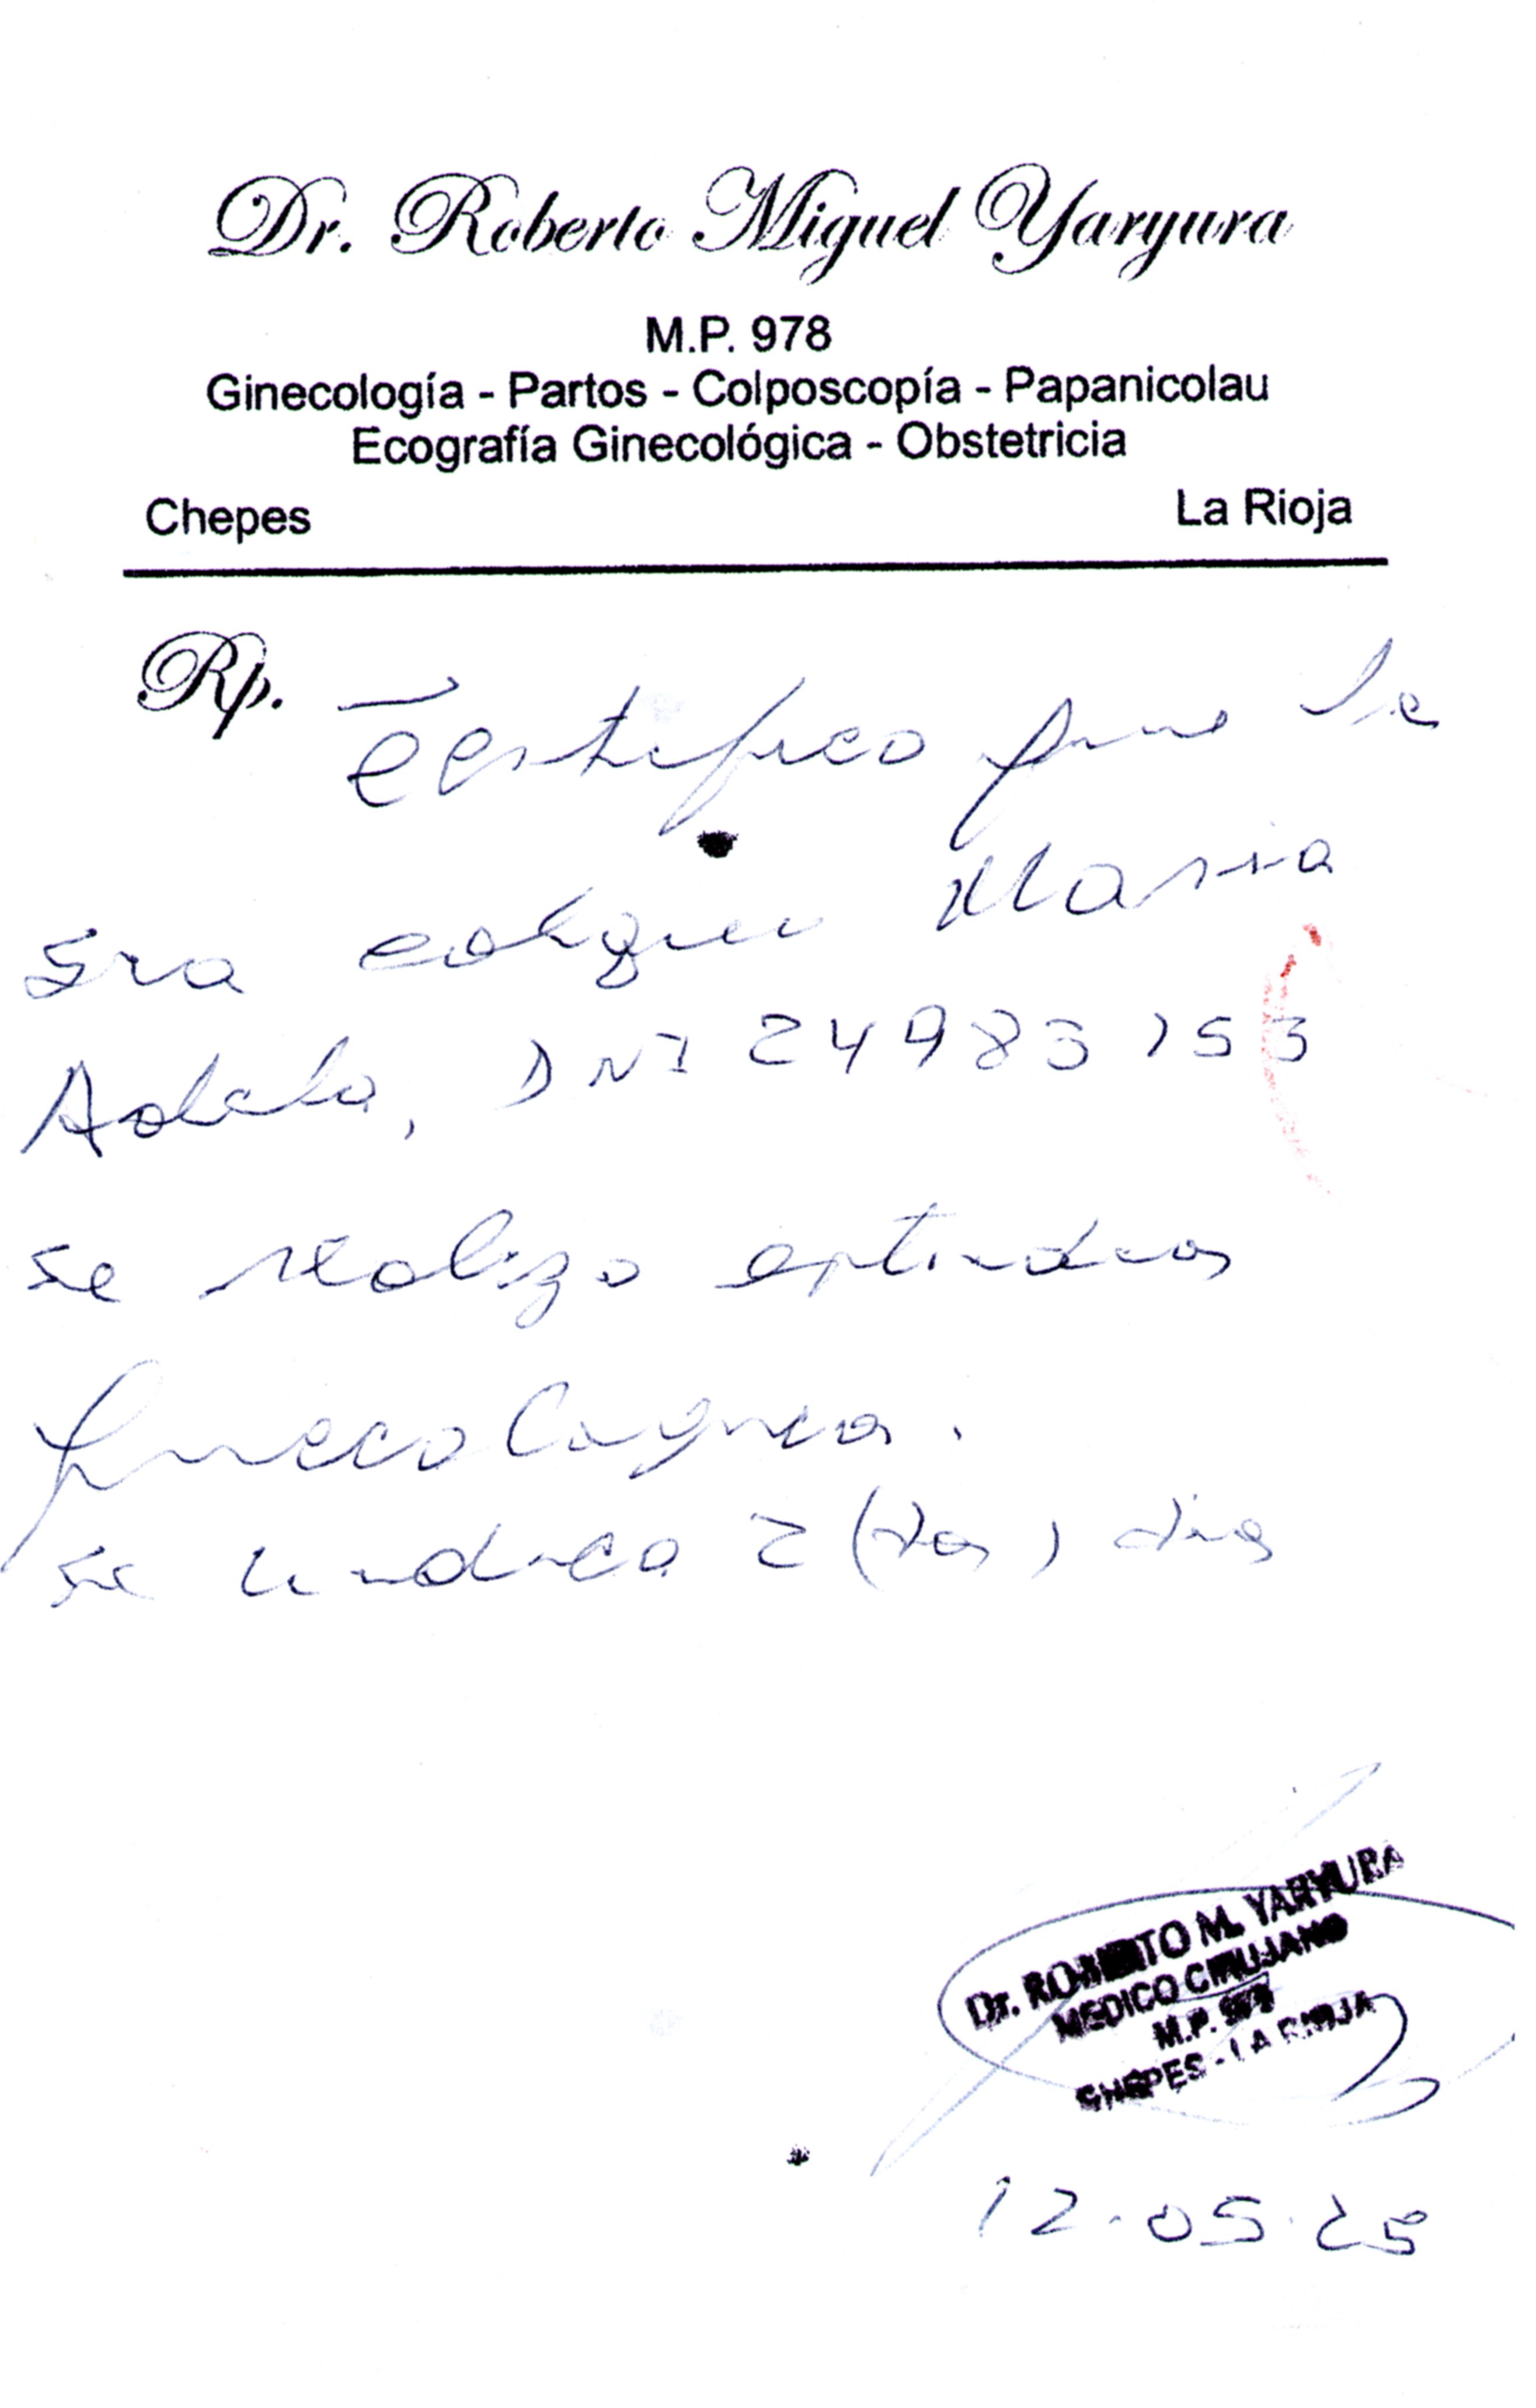 Dr. Roberto Miguel Yaryura
M.P. 978
Ginecología - Partos - Colposcopía - Papanicolau
Ecografía Ginecológica - Obstetricia
Chepes La Rioja
Rp. Certifico que la
Sra Maria
Adela, DNI 24983153
se realizo estudios
ginecologicos.
se indica 2 (dos) dias
Dr. ROBERTO M. YARYURA
MEDICO CIRUJANO
M.P. 978
CHEPES - LA RIOJA
12.05.25